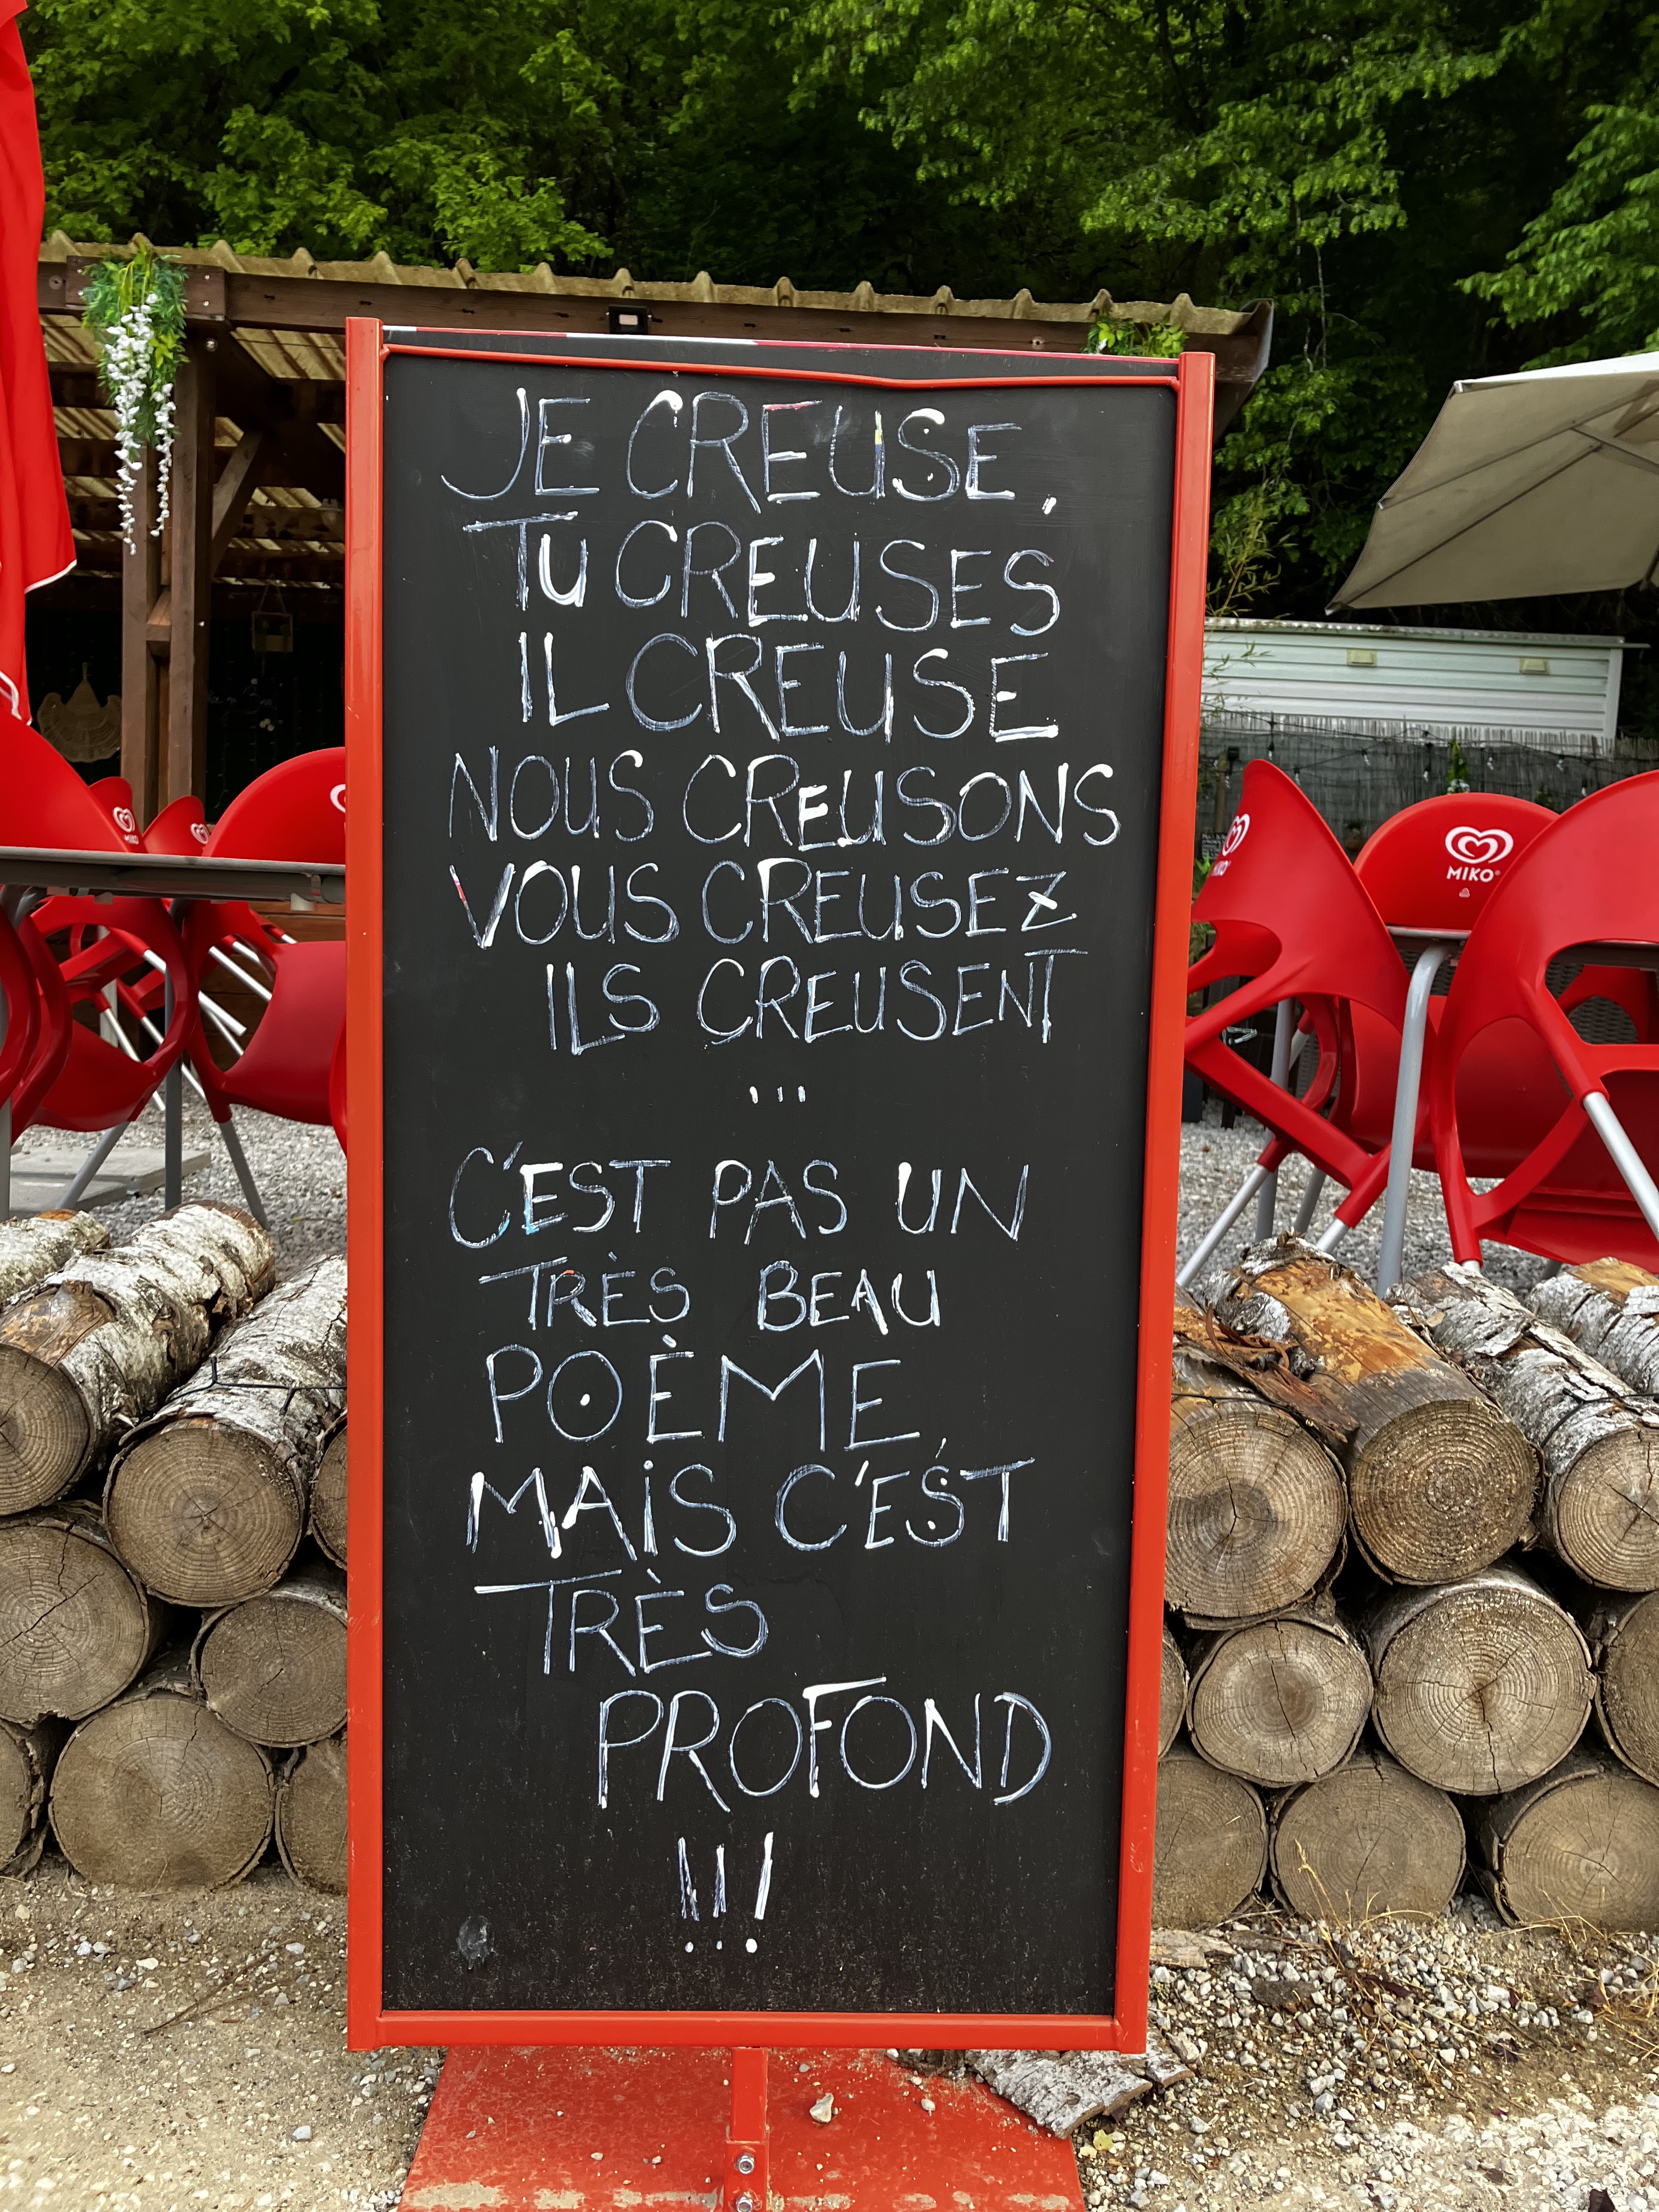 JE CREUSE,
TU CREUSES
IL CREUSE
NOUS CREUSONS
VOUS CREUSEZ
ILS CREUSENT
...
C'EST PAS UN
TRÈS BEAU
POÈME,
MAIS C'EST
TRÈS
PROFOND
!!!
MIKO
MIKO
MIKO